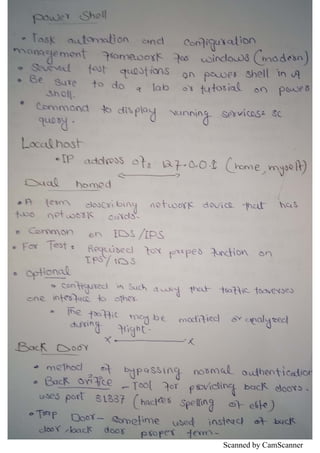 Power Shell
• Task automation and configuration
management framework for windows (modern)
• Several test questions on power shell in A
• Be sure to do a lab or tutorial on power
shell.
• Command to display running services: sc
query.
Localhost
• IP address of: 127.0.0.1 (home, myself)
Dual homed
• A term describing network device that has
two network cards.
• Common on IDS/IPS
• For Test: Required for proper function on
IPS/IDS
• Optional
• configured in such a way that traffic traverses
one interface to other.
• The traffic may be modified or analyzed
during flight.
x x
Back Door
• method of bypassing normal authentication
• Back orifice - Tool for providing back doors.
uses port 31337 (hacker spelling of elite)
• Trap Door - Sometime used instead of back
door. back door proper term.
Scanned by CamScanner